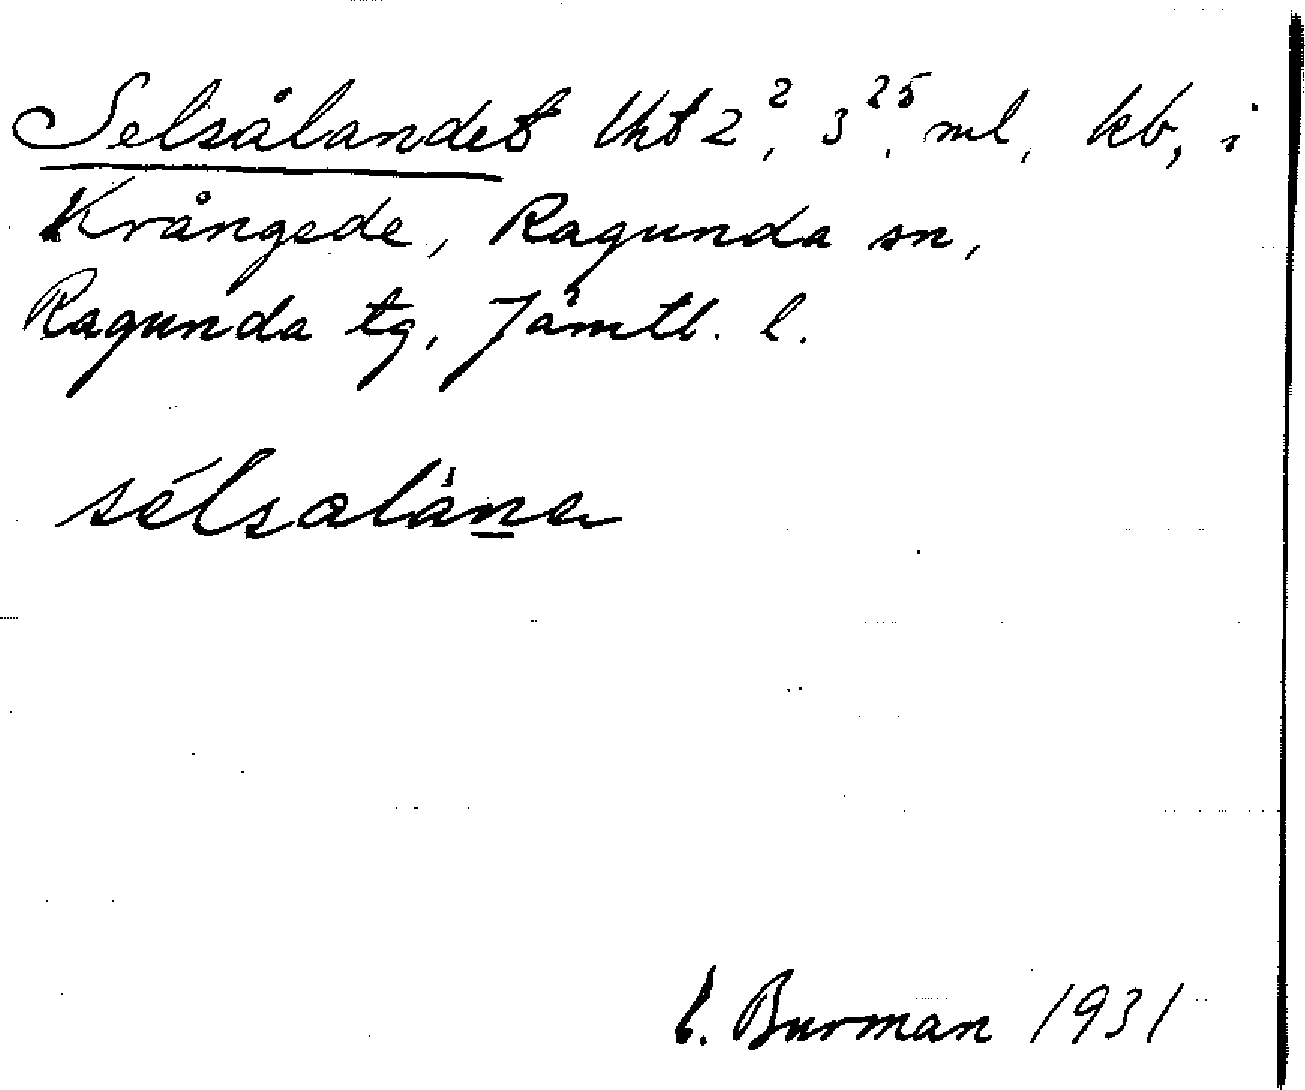 Selsålandet Uht 2², 3²⁵, ml, kb, i
Krångede, Ragunda sn,
Ragunda tg, Jämtl. l.
sélsaláṉa
E. Burman 1931